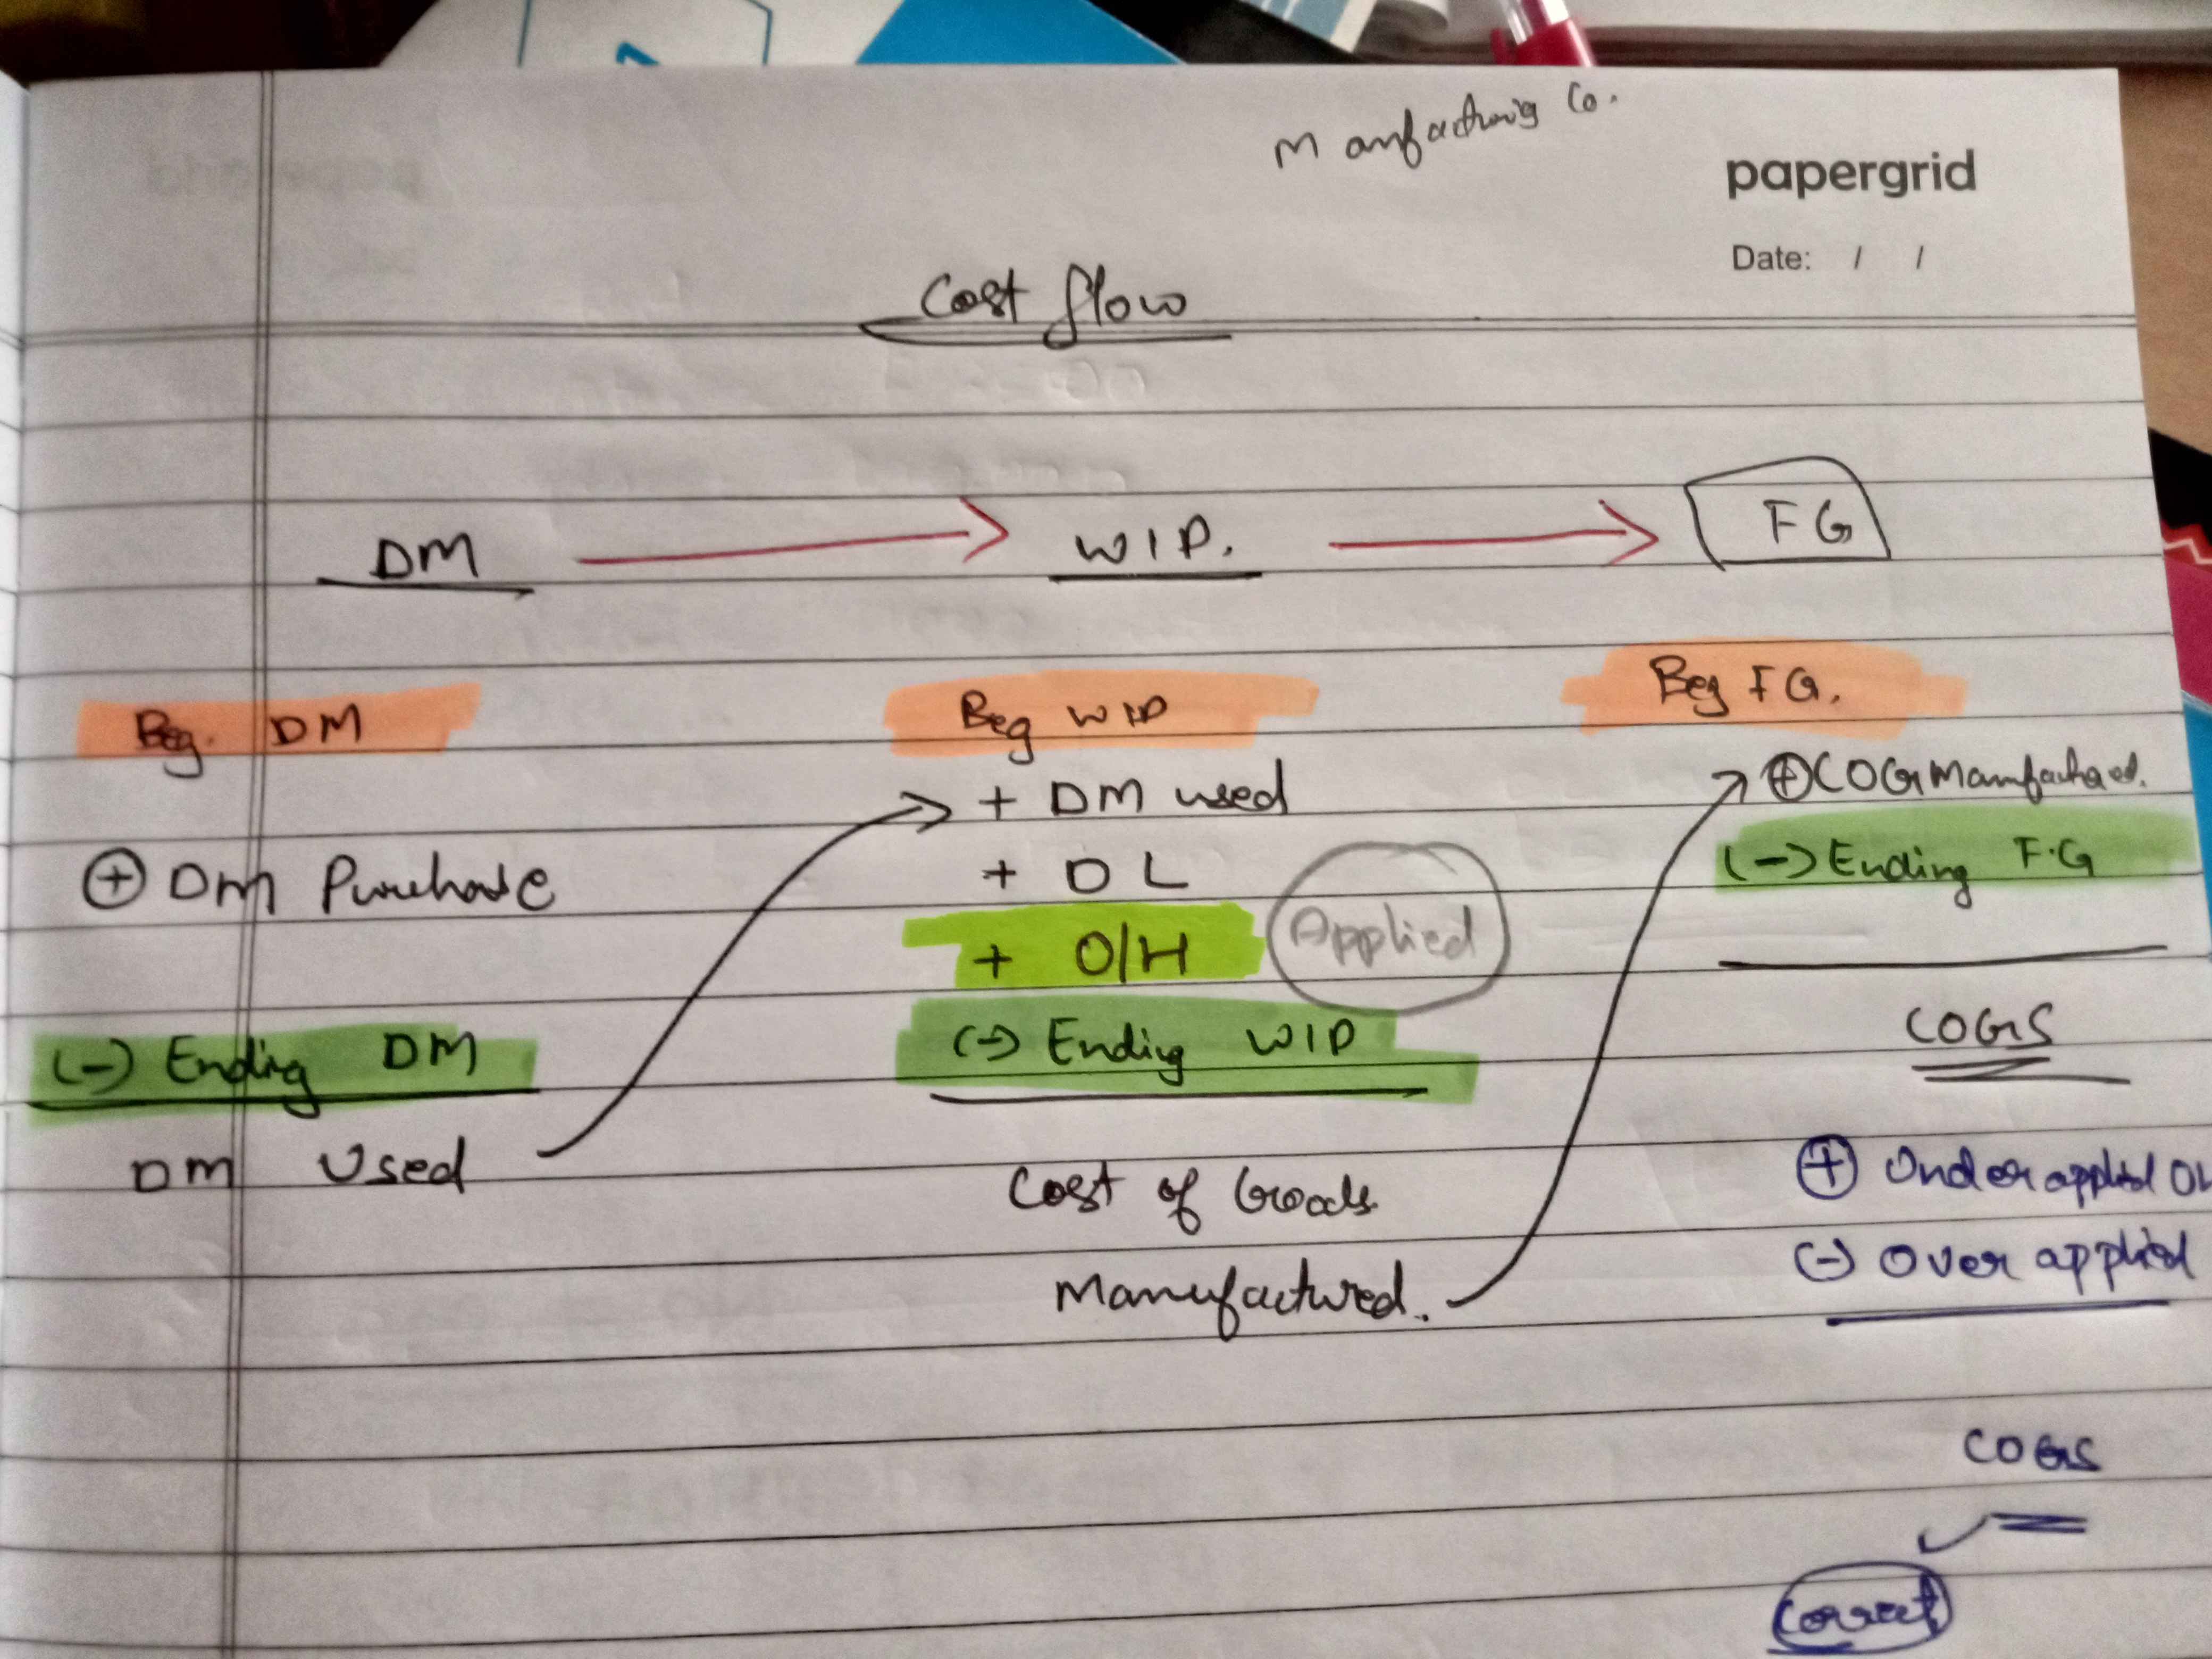 Manfacturig Co.
papergrid
Date: / /
Cost flow
DM → WIP. → FG
Beg. DM
⊕ DM Purchase
(-) Ending DM
DM Used
Beg WIP
+ DM used
+ DL
+ O/H Applied
(-) Ending WIP
Cost of Goods
Manufactured.
Beg FG.
⊕ COGManufactured.
(-) Ending F.G
COGS
⊕ Underapplied
(-) Over applied
COGS
Correct